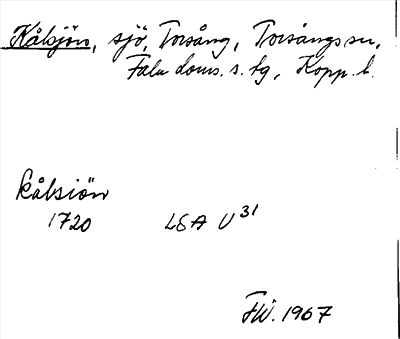 Kålsjön, sjö, Torsång, Torsångs sn,
Falu doms. s. tg, Kopp. l.
kålsiön
1720 LSA U 31
FW. 1967